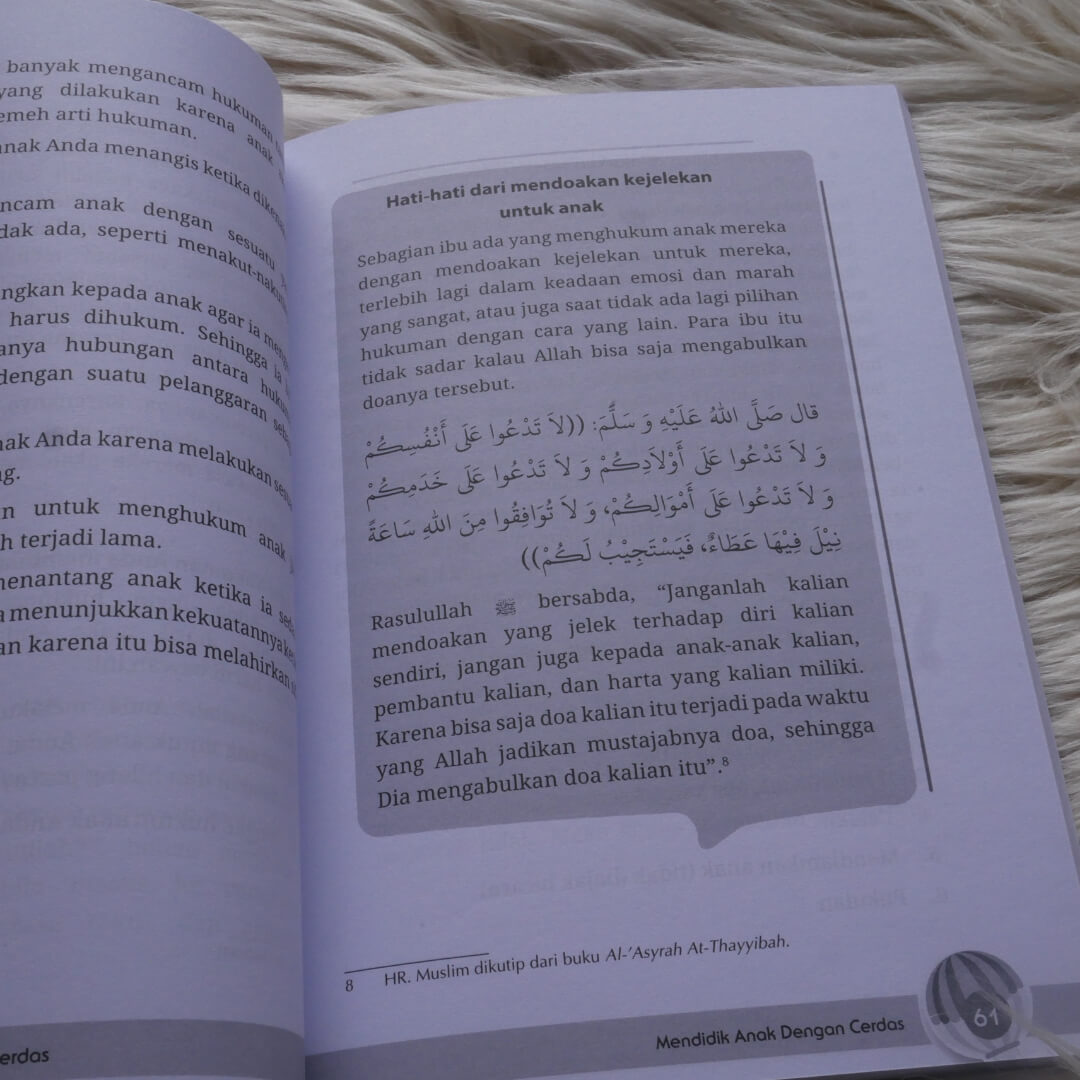 banyak mengancam hukuman
yang dilakukan karena anak
emeh arti hukuman.
anak Anda menangis ketika
ncam anak dengan sesuatu
dak ada, seperti
ngkan kepada anak agar ia
harus dihukum. Sehingga ia
anya hubungan antara
dengan suatu pelanggaran
nak Anda karena melakukan
g.
n untuk menghukum anak
h terjadi lama.
menantang anak ketika ia
a menunjukkan kekuatannya
an karena itu bisa melahirkan
erdas
Hati-hati dari mendoakan kejelekan
untuk anak
Sebagian ibu ada yang menghukum anak mereka
dengan mendoakan kejelekan untuk mereka,
terlebih lagi dalam keadaan emosi dan marah
yang sangat, atau juga saat tidak ada lagi pilihan
hukuman dengan cara yang lain. Para ibu itu
tidak sadar kalau Allah bisa saja mengabulkan
doanya tersebut.
قال صَلَّى اللهُ عَلَيْهِ وَ سَلَّمَ: ((لاَ تَدْعُوا عَلَى أَنْفُسِكُمْ
وَ لاَ تَدْعُوا عَلَى أَوْلاَدِكُمْ وَ لاَ تَدْعُوا عَلَى خَدَمِكُمْ
وَ لاَ تَدْعُوا عَلَى أَمْوَالِكُمْ، وَ لاَ تُوَافِقُوا مِنَ اللهِ سَاعَةً
نِيْلَ فِيْهَا عَطَاءٌ، فَيَسْتَجِيْبُ لَكُمْ))
Rasulullah ﷺ bersabda, “Janganlah kalian
mendoakan yang jelek terhadap diri kalian
sendiri, jangan juga kepada anak-anak kalian,
pembantu kalian, dan harta yang kalian miliki.
Karena bisa saja doa kalian itu terjadi pada waktu
yang Allah jadikan mustajabnya doa, sehingga
Dia mengabulkan doa kalian itu”.⁸
8 HR. Muslim dikutip dari buku Al-’Asyrah At-Thayyibah.
Mendidik Anak Dengan Cerdas
61